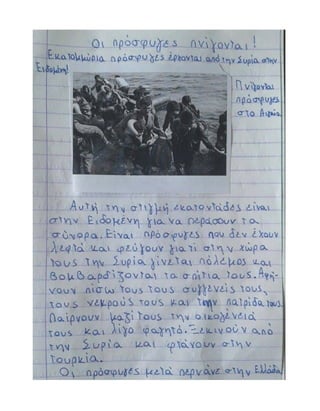 Οι πρόσφυγες πνίγονται!
Εκατομμύρια πρόσφυγες έρχονται από την Συρία στην
Ειδομένη!
Πνίγονται
πρόσφυγες
στο Αιγαίο
Αυτή την στιγμή εκατοντάδες είναι
στην Ειδομένη για να περάσουν τα
σύνορα. Είναι πρόσφυγες που δεν έχουν
λεφτά και φεύγουν γιατί στην χώρα
τους την Συρία γίνεται πόλεμος και
βομβαρδίζονται τα σπίτια τους. Αφή-
νουν πίσω τους τους συγγενείς τους,
τους νεκρούς τους και την πατρίδα τους
Παίρνουν μαζί τους την οικογένειά
τους και λίγο φαγητό. Ξεκινούν από
την Συρία και φτάνουν στην
τουρκία.
Οι πρόσφυγες μετά περνάνε στην Ελλάδα